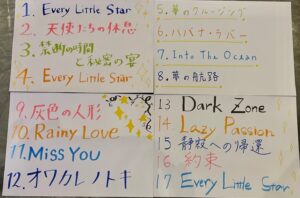 1. Every Little Star
2. 天使たちの休息
3. 禁断の時間
と秘密の宴
4. Every Little Star
5. 夢のクルージング
6. ハバナ・ラバー
7. Into The Ocean
8. 夢の航路
9. 灰色の人形
10. Rainy Love
11. Miss You
12. オワカレノトキ
13 Dark Zone
14 Lazy Passion
15 静寂への帰還
16 約束
17 Every Little Star